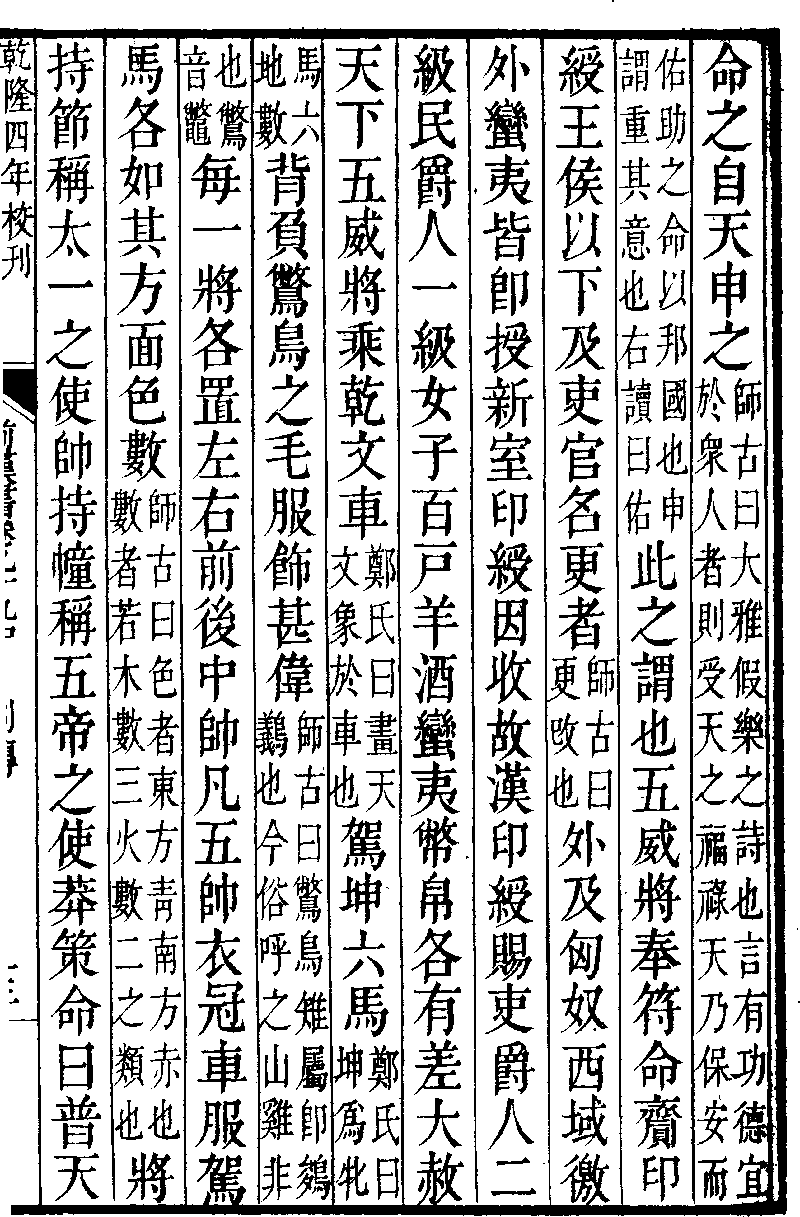 命之自天申之師古曰大雅假樂之詩也言有功德宜於衆人者則受天之福祿天乃保安而
佑助之命以邦國也申謂重其意也右讀曰佑此之謂也五威將奉符命齎印
綬王侯以下及吏官名更者師古曰更改也外及匈奴西域徼
外蠻夷皆卽授新室印綬因收故漢印綬賜吏爵人二
級民爵人一級女子百戸羊酒蠻夷幣帛各有差大赦
天下五威將乘乾文車鄭氏曰畫天文象於車也駕坤六馬鄭氏曰坤爲牝
馬六地數背負鷩鳥之毛服飾甚偉師古曰鷩鳥雉屬卽鵕鸃也今俗呼之山雞非
也鷩音鼈每一將各置左右前後中帥凡五帥衣冠車服駕
馬各如其方面色數師古曰色者東方青南方赤也數者若木數三火數二之類也將
持節稱太一之使帥持幢稱五帝之使莽策命曰普天
乾隆四年校刊
前漢書卷九十九中 列傳